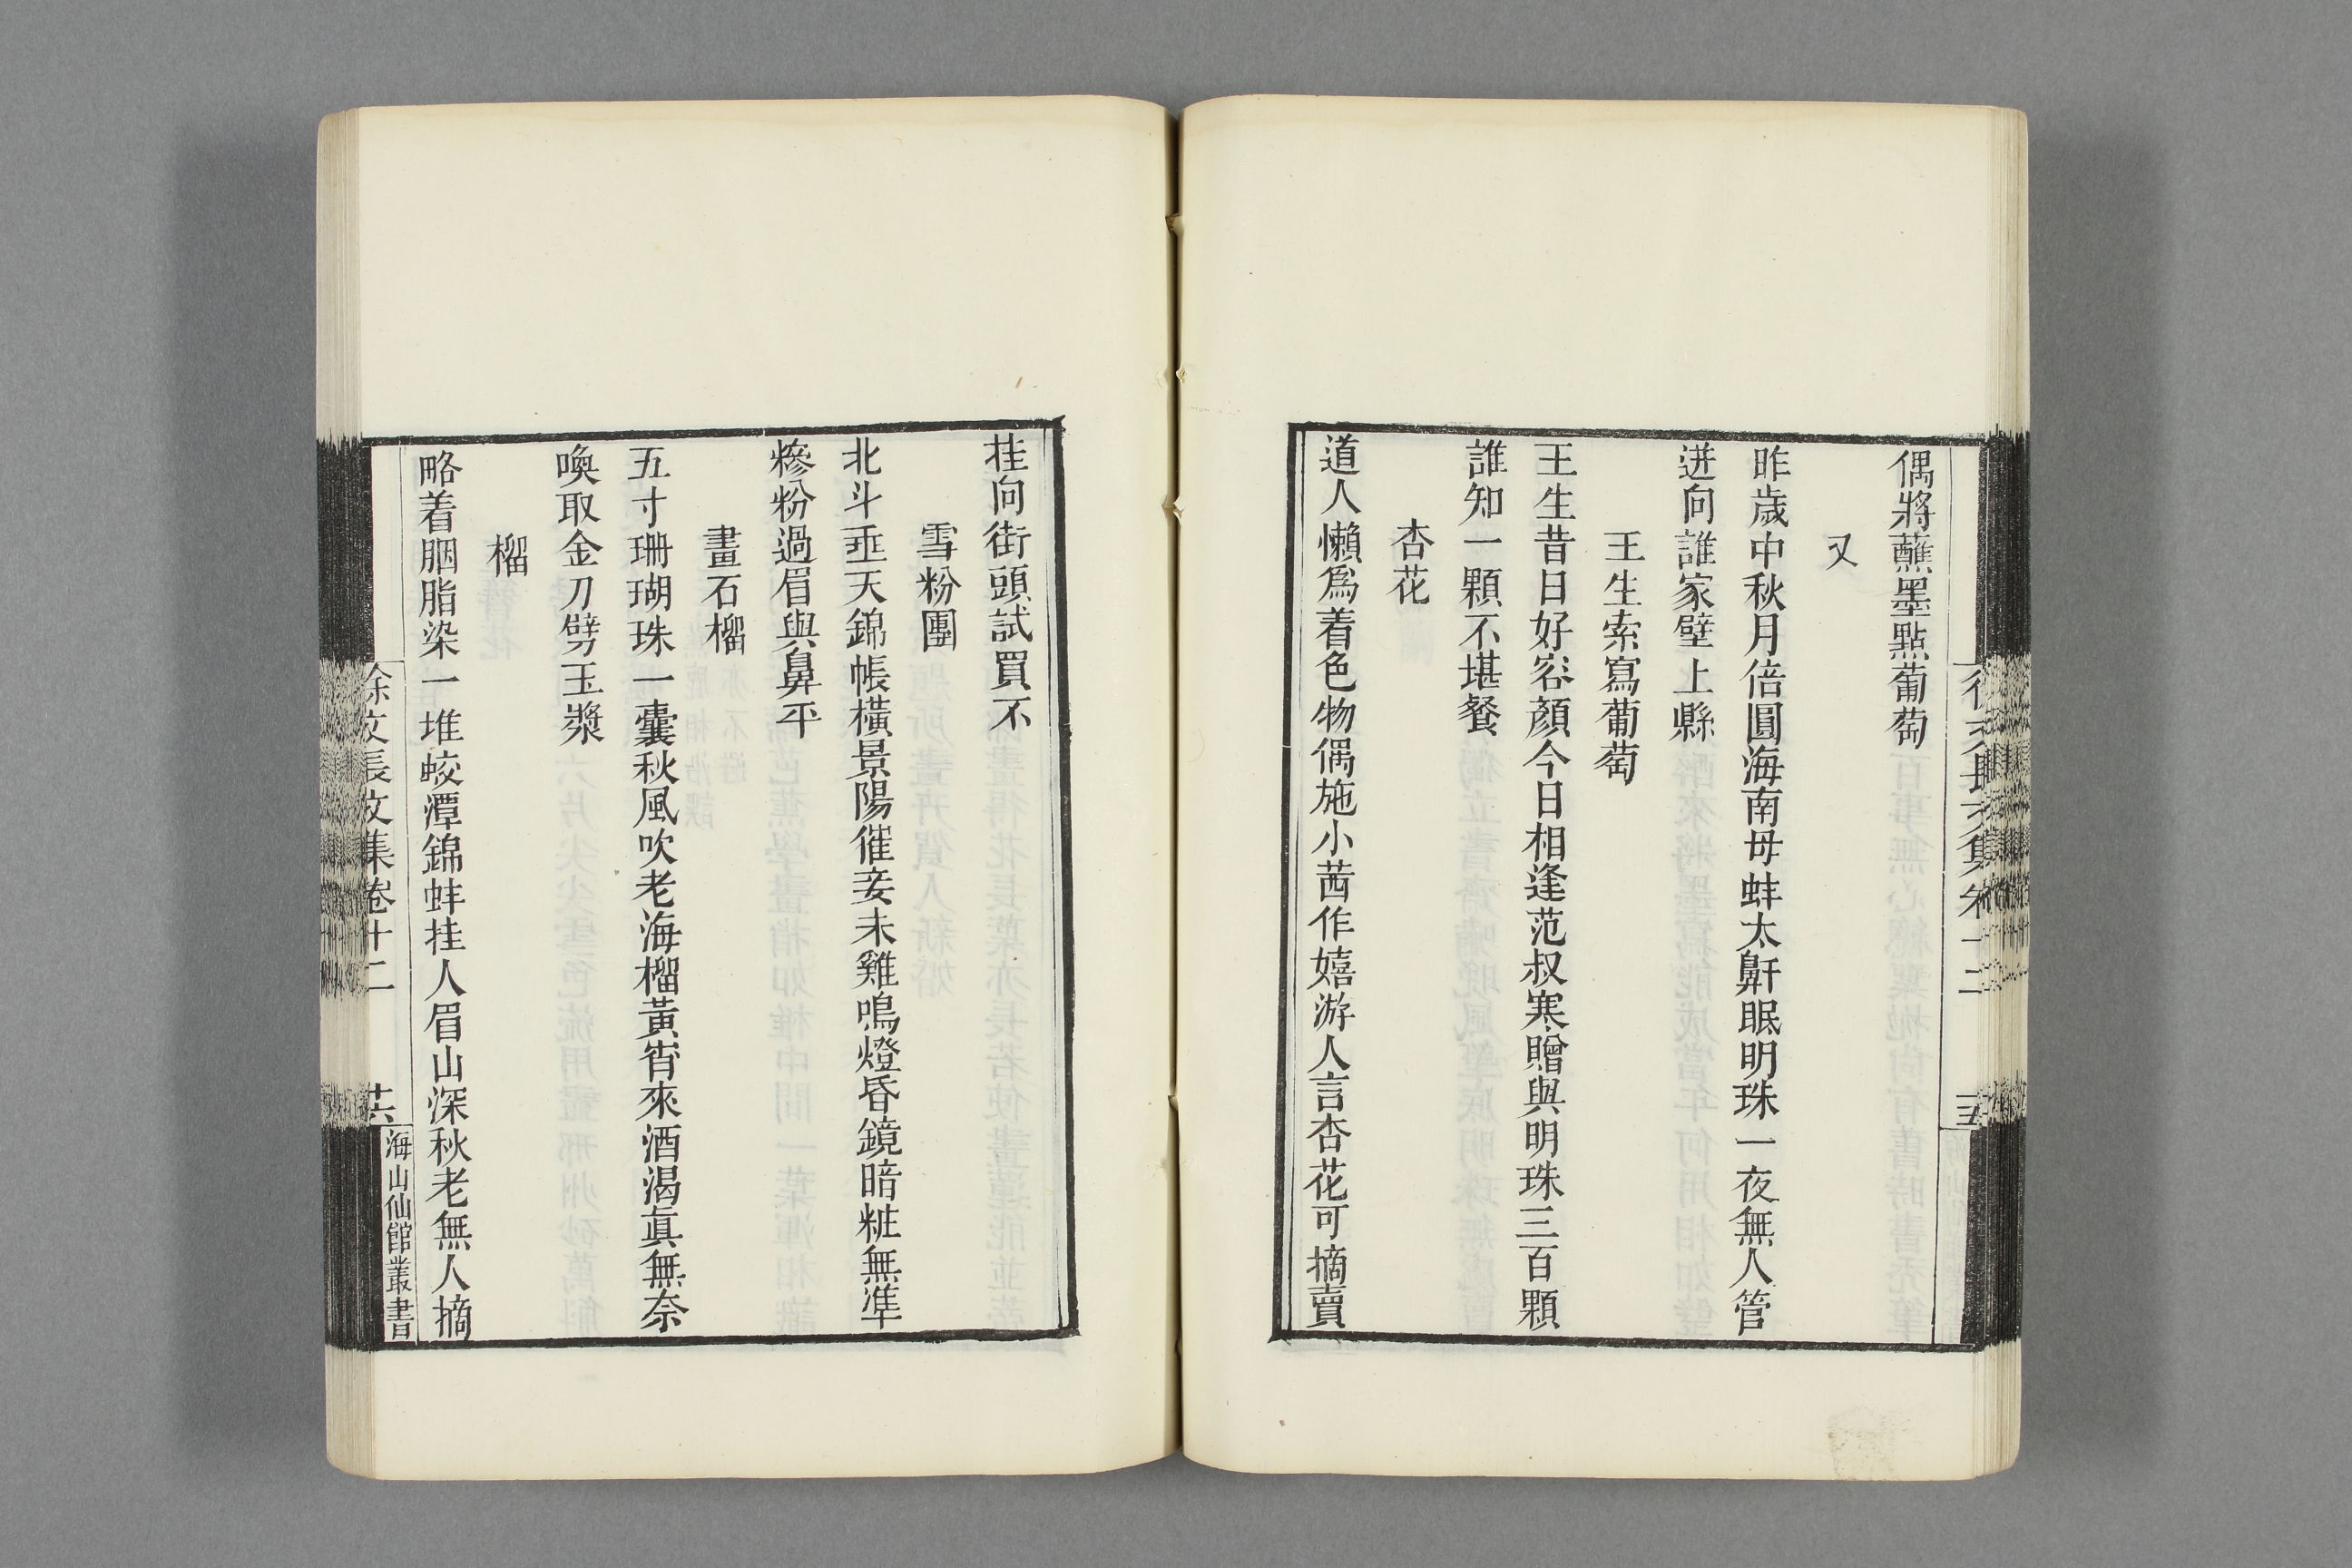 偶將蘸墨點葡萄
又
昨歲中秋月倍圓海南母蚌太鼾眠明珠一夜無人管
迸向誰家壁上縣
王生索寫葡萄
王生昔日好容顏今日相逢范叔寒贈與明珠三百顆
誰知一顆不堪餐
杏花
道人懶爲着色物偶施小茜作嬉游人言杏花可摘賣
挂向街頭試買不
雪粉團
北斗垂天錦帳橫景陽催妾未雞鳴燈昏鏡暗粧無準
糝粉過眉與鼻平
畫石榴
五寸珊瑚珠一囊秋風吹老海榴黃宵來酒渴眞無奈
喚取金刀劈玉漿
榴
略着胭脂染一堆蛟潭錦蚌挂人眉山深秋老無人摘
徐文長文集卷十二
十六
海山仙館叢書